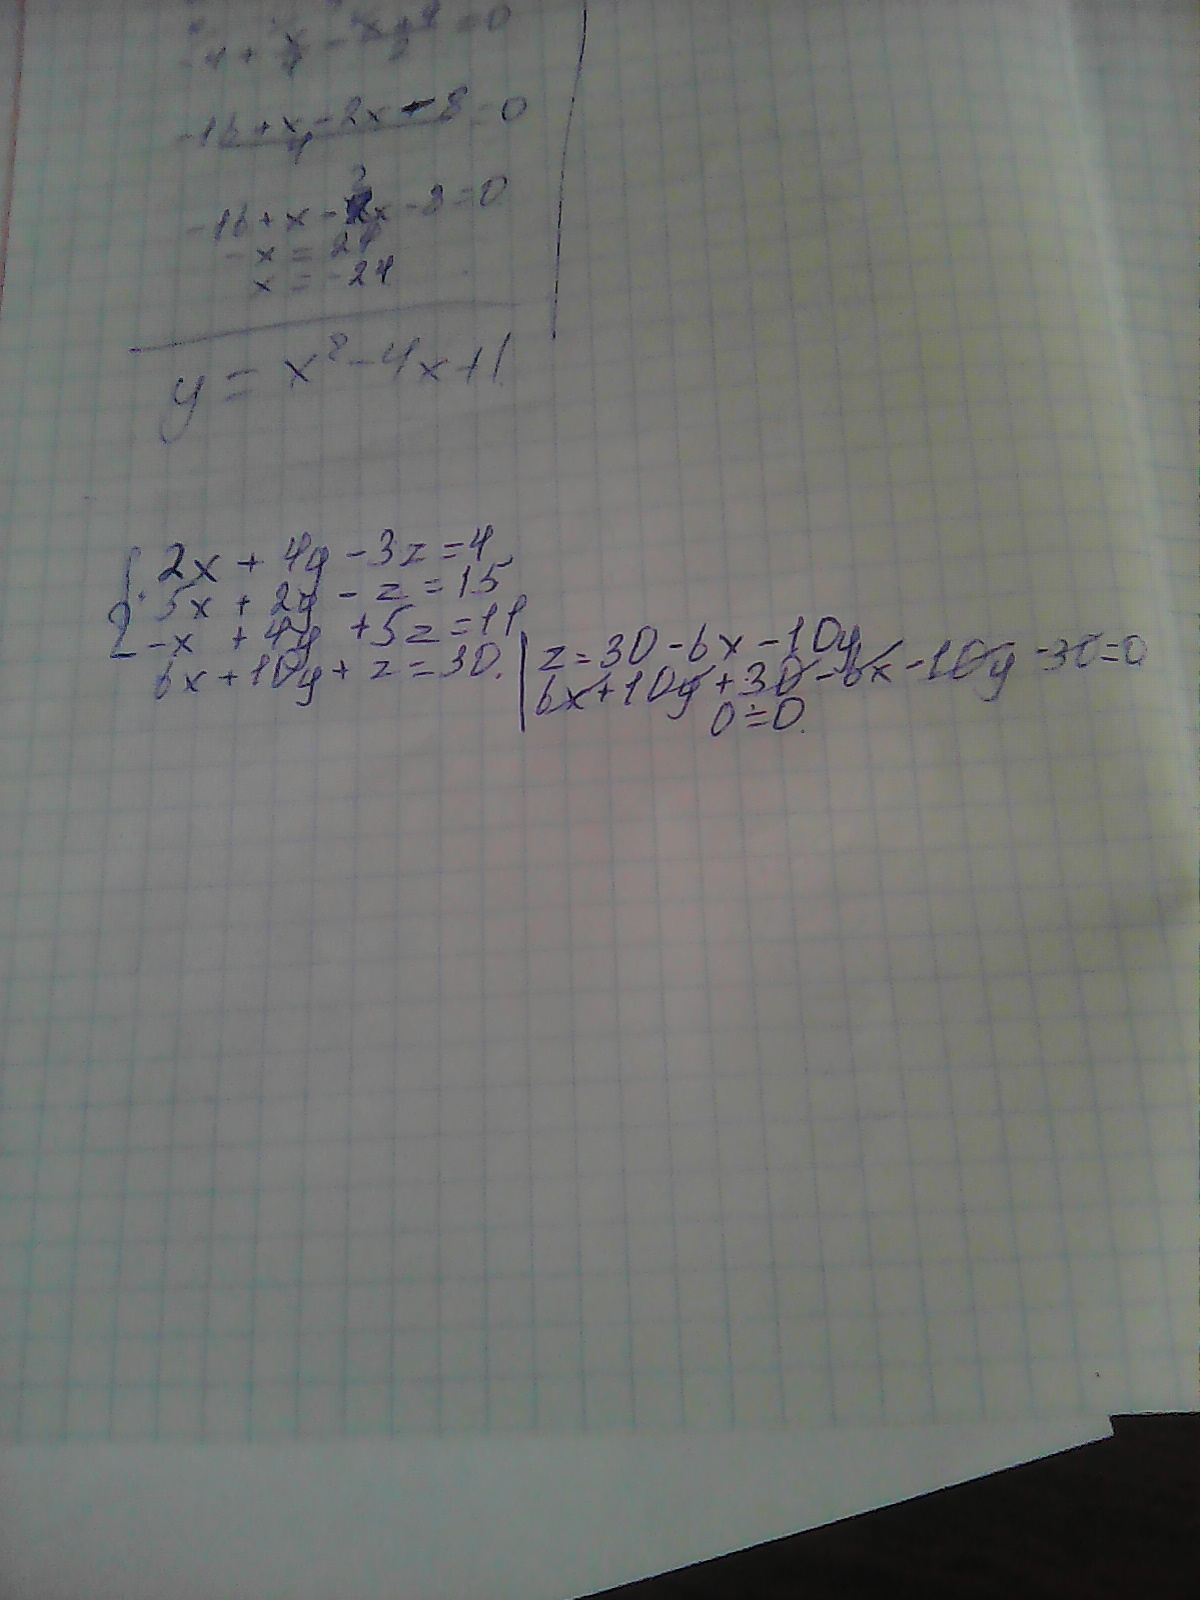 -4 + x/4 - x+4/2 = 0
-16 + x - 2x - 8/4 = 0
-16 + x - 2x - 8 = 0
-x = 24
x = -24
y = x² - 4x + 1
{ 2x + 4y - 3z = 4
5x + 2y - z = 15
-x + 4y + 5z = 11
6x + 10y + z = 30. | z = 30 - 6x - 10y
6x + 10y + 30 - 6x - 10y - 30 = 0
0 = 0.